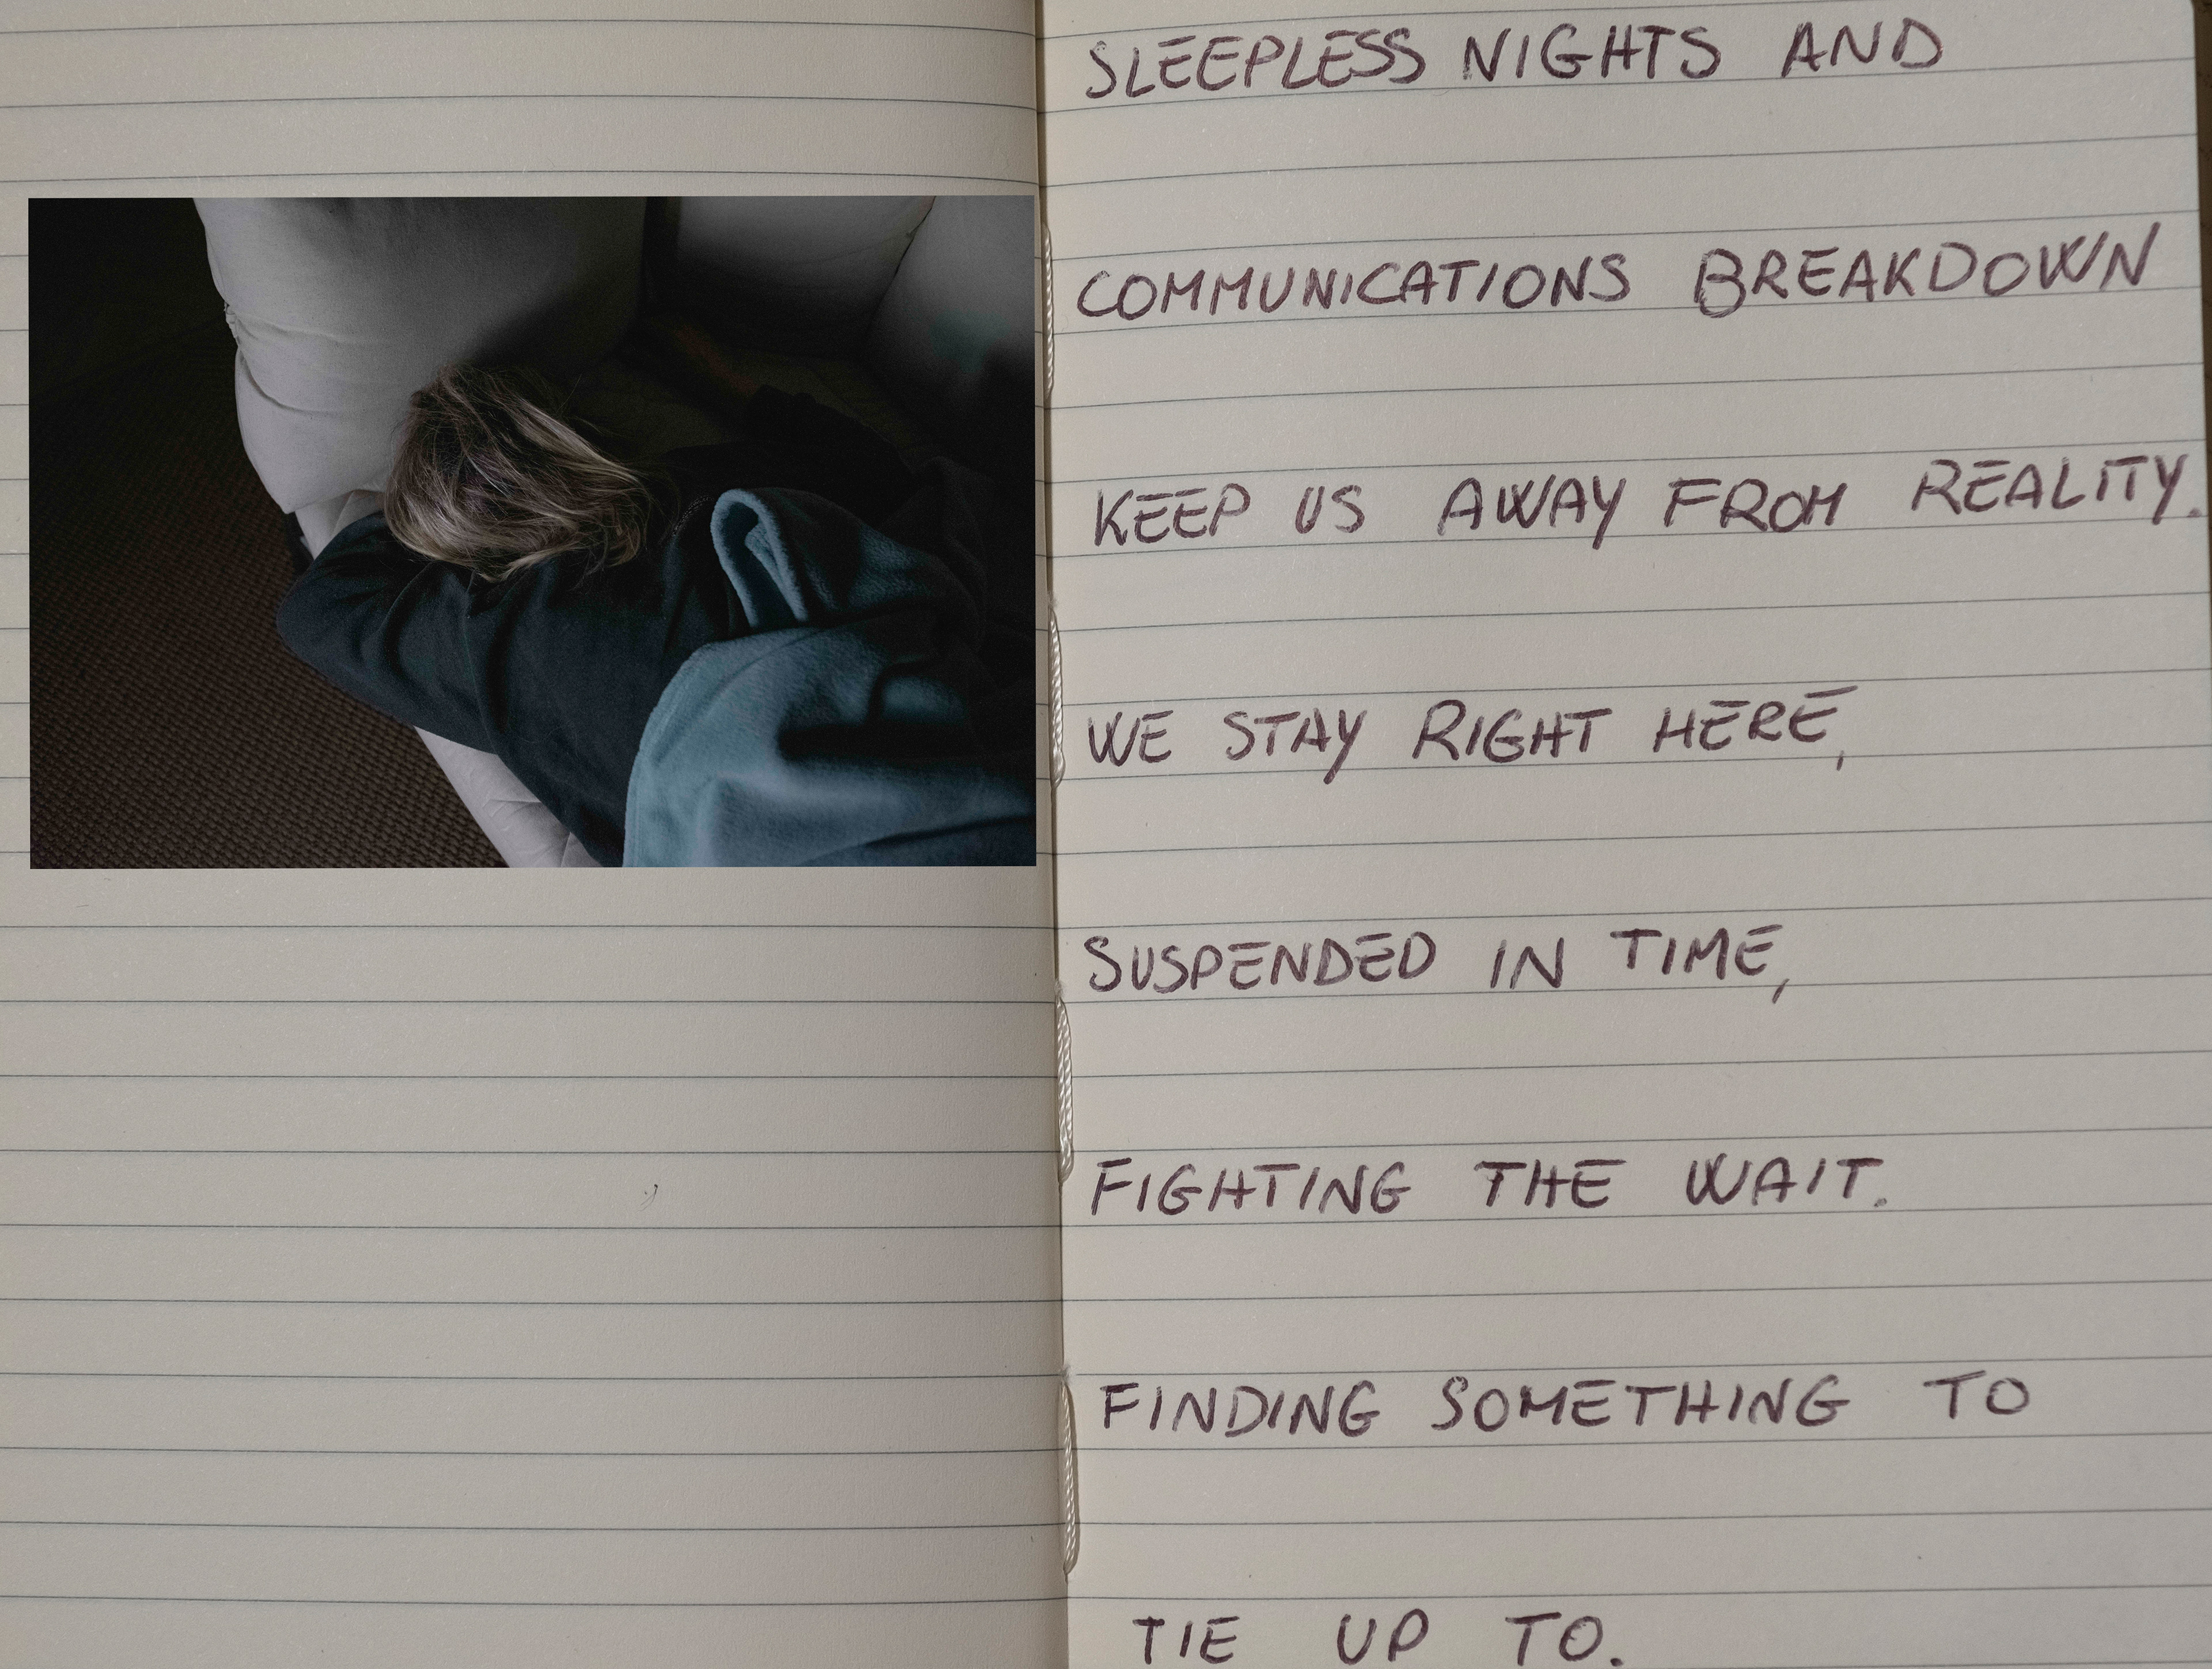 SLEEPLESS NIGHTS AND
COMMUNICATIONS BREAKDOWN
KEEP US AWAY FROM REALITY.
WE STAY RIGHT HERE,
SUSPENDED IN TIME,
FIGHTING THE WAIT.
FINDING SOMETHING TO
TIE UP TO.